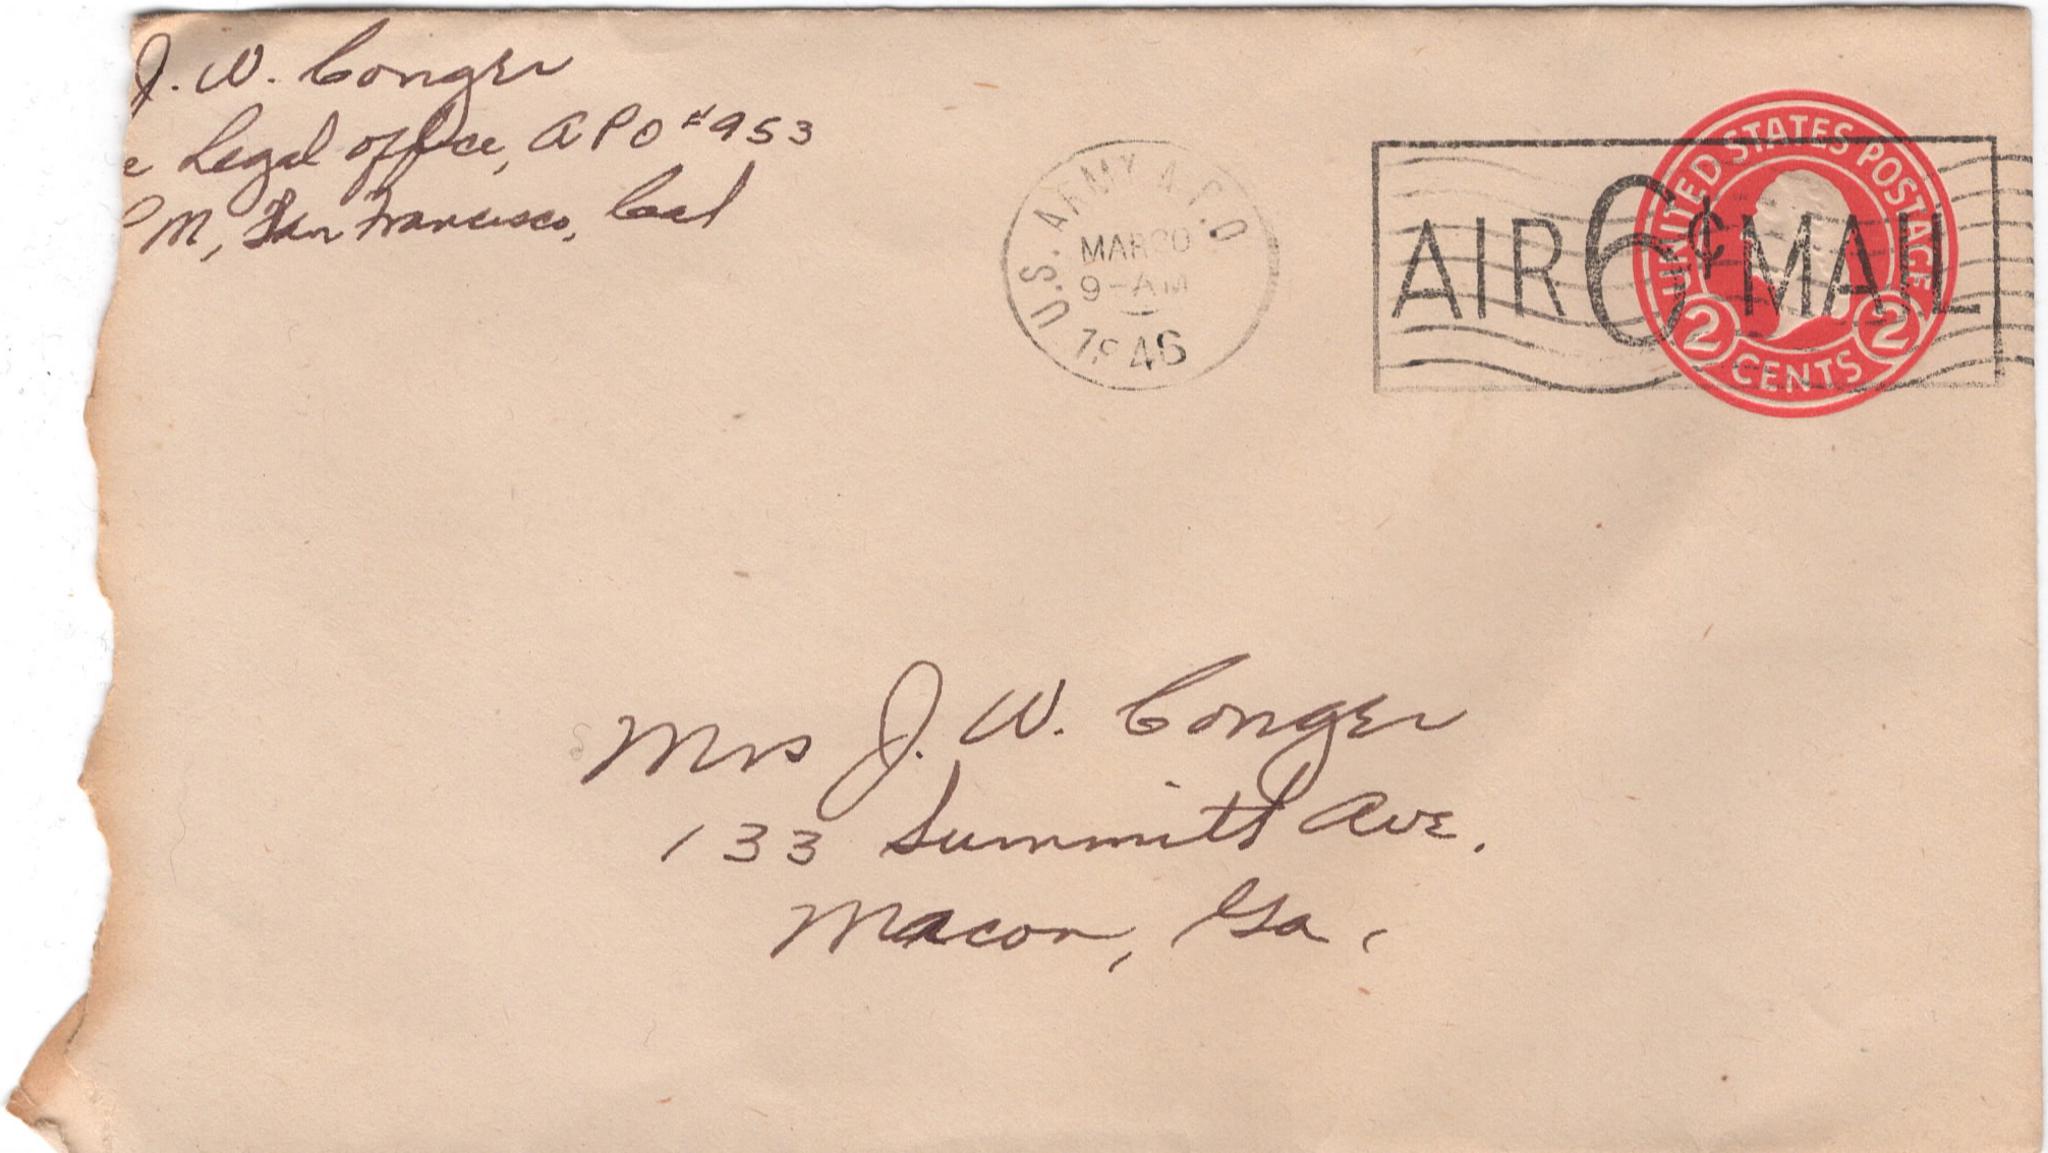 J. W. Conger
e Legal office, APO #953
PM, San Francisco, Cal
U.S. ARMY A.P.O
MAR 20
9-AM
1946
AIR 6¢ MAIL
UNITED STATES POSTAGE
2 CENTS 2
Mrs J. W. Conger
133 Summitt Ave.
Macon, Ga.